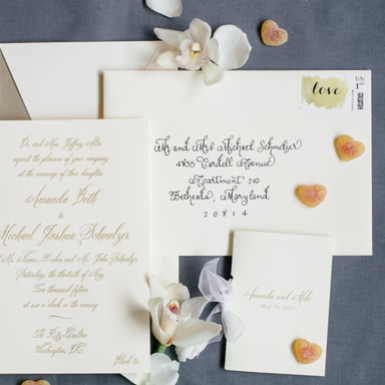 Dr. and Mrs. Jeffrey Allen
request the pleasure of your company
at the marriage of their daughter
Amanda Beth
to
Michael Joshua Schmelzer
Saturday, the thirtieth of May
Two thousand fifteen
at six o'clock in the evening
Washington, DC
Black tie
love
US
Mr and Mrs Michael Schmelzer
4850 Cordell Avenue
Apartment 210
Bethesda, Maryland
20814
Amanda and Mike
May 30, 2015